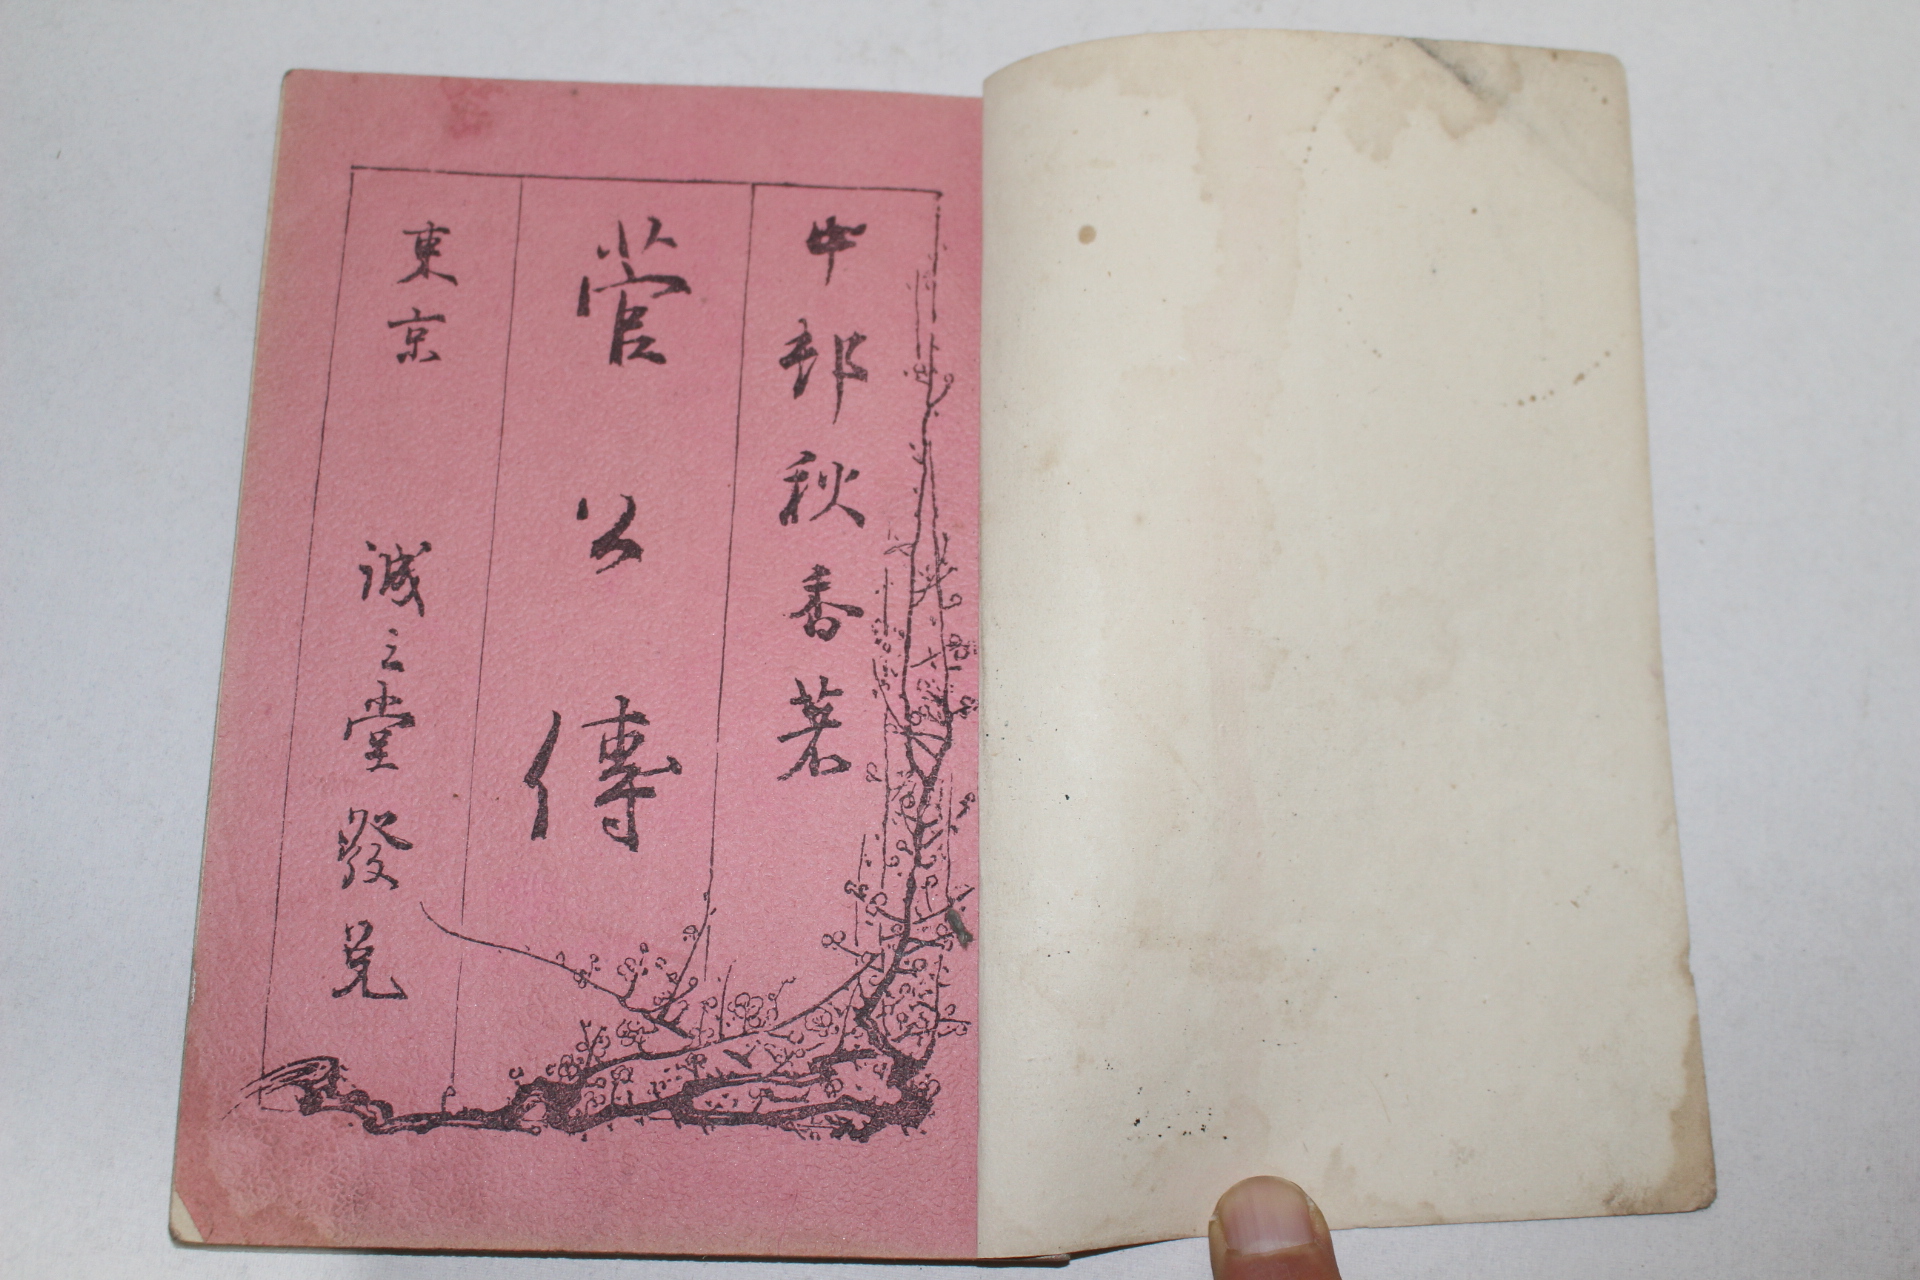 中邨秋香著
菅公傳
東京 誠之堂發兌